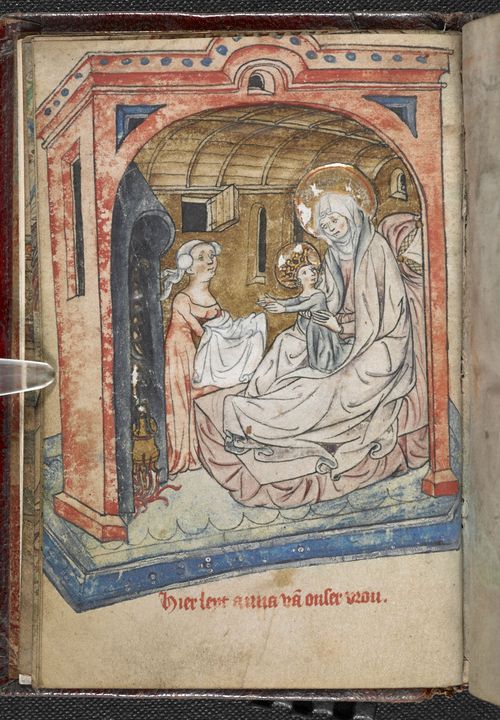 Hier leyt anna vā onser vrou.